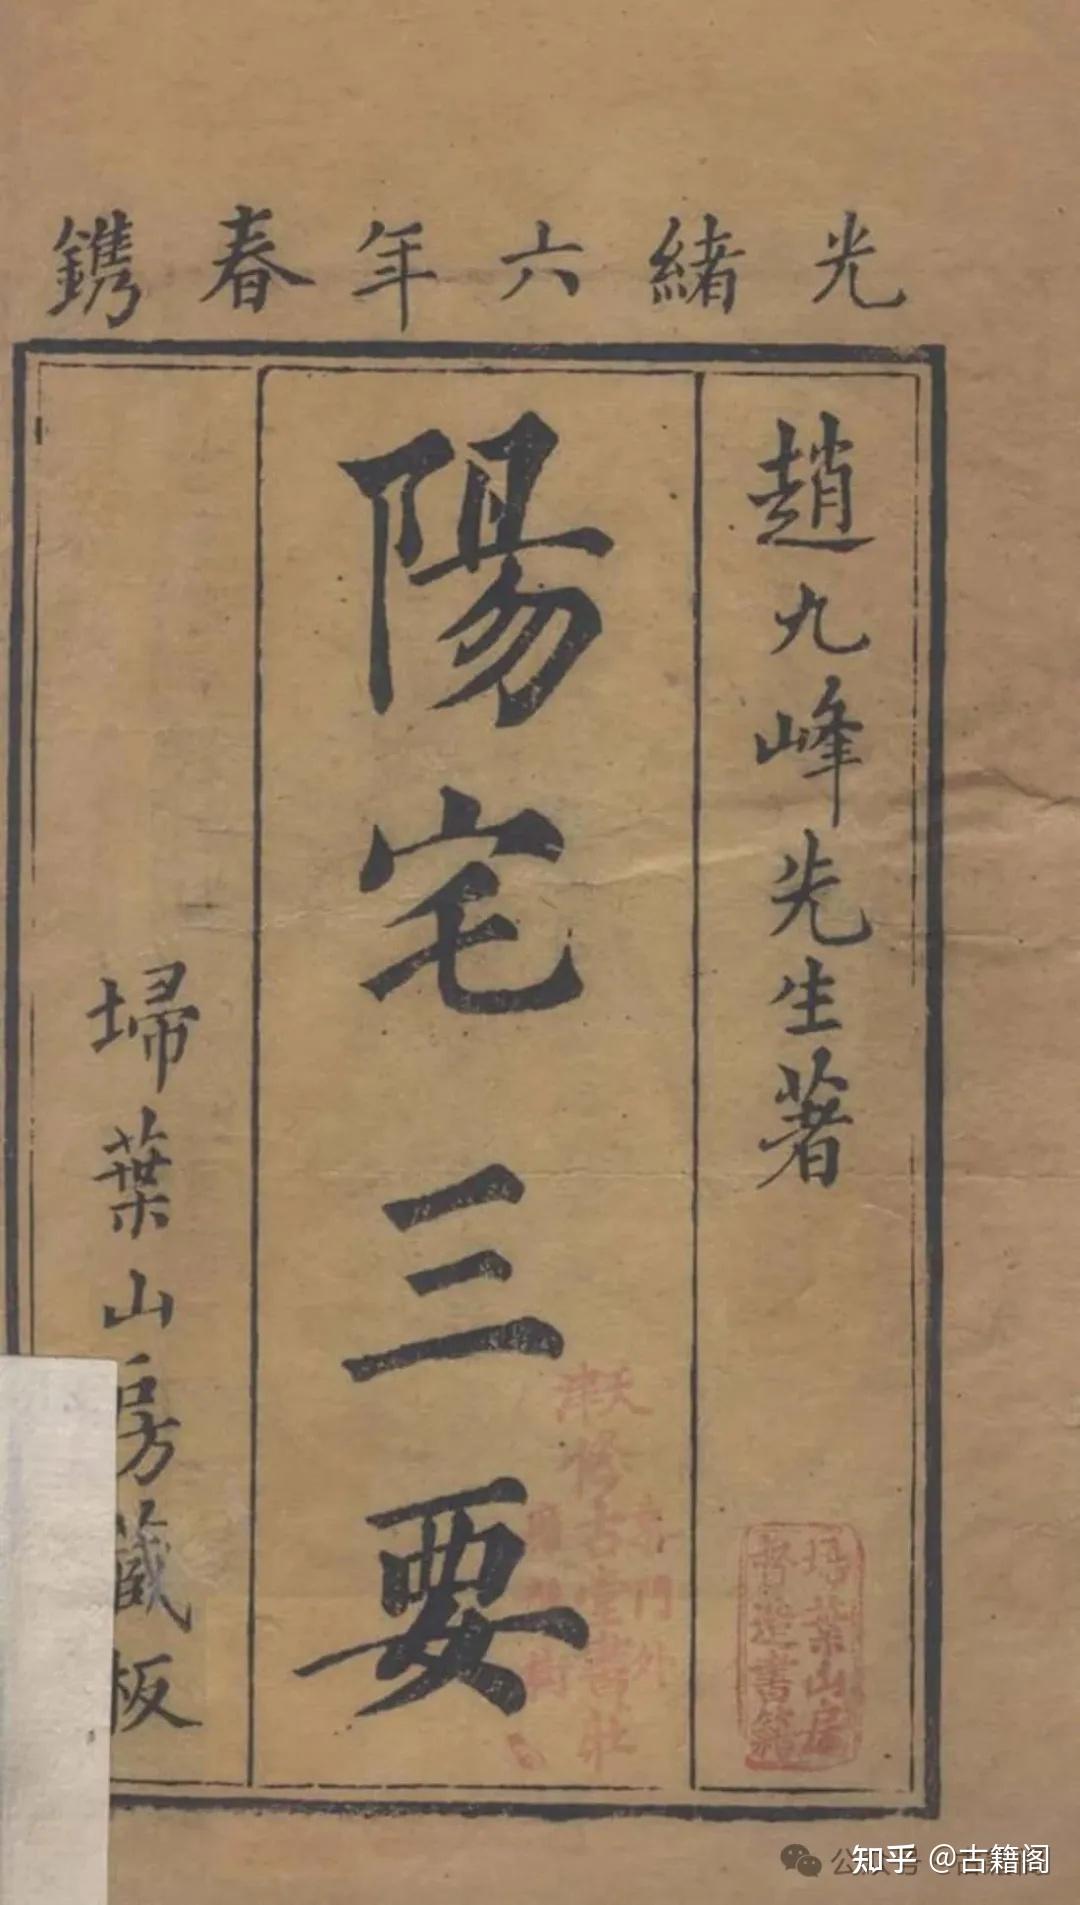 光緒六年春鐫
趙九峰先生著
陽宅三要
埽葉山房藏板
天津
修古堂書莊
門外
埽葉山房
督造書籍
知乎 @古籍阁